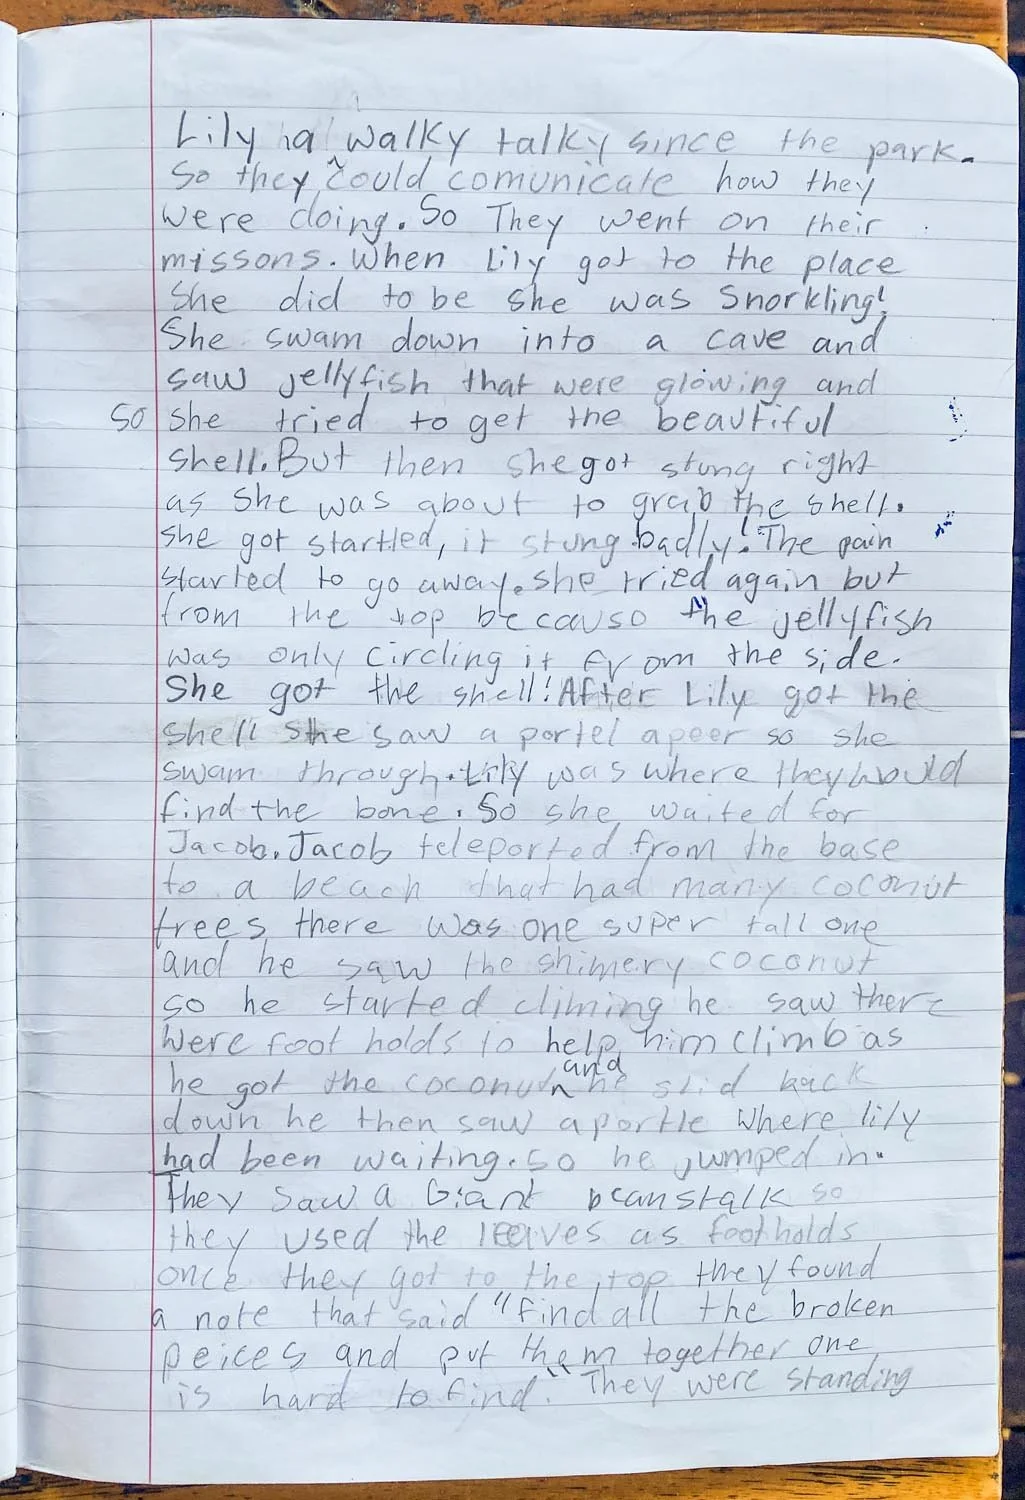 Lily ha walky talky since the park.
So they could comunicate how they
were doing. So They went on their
missons. When Lily got to the place
She did to be she was Snorkling!
She swam down into a cave and
saw jellyfish that were glowing and
so she tried to get the beautiful
shell. But then she got stung right
as she was about to grab the shell.
She got startled, it stung badly! The pain
started to go away. she tried again but
from the top becauso the jellyfish
was only circling it from the side.
She got the shell! After Lily got the
shell she saw a portel apeer so she
swam through. Lily was where they would
find the bone. So she waited for
Jacob. Jacob teleported from the base
to a beach that had many coconut
trees there was one super tall one
and he saw the shimery coconut
so he started climing he saw there
were foot holds to help him climb as
he got the coconut and he slid back
down he then saw a portle where lily
had been waiting. so he jumped in.
They saw a Giant beanstalk so
they used the leeives as footholds
once they got to the top they found
a note that said "find all the broken
peices and put them together one
is hard to find." They were standing